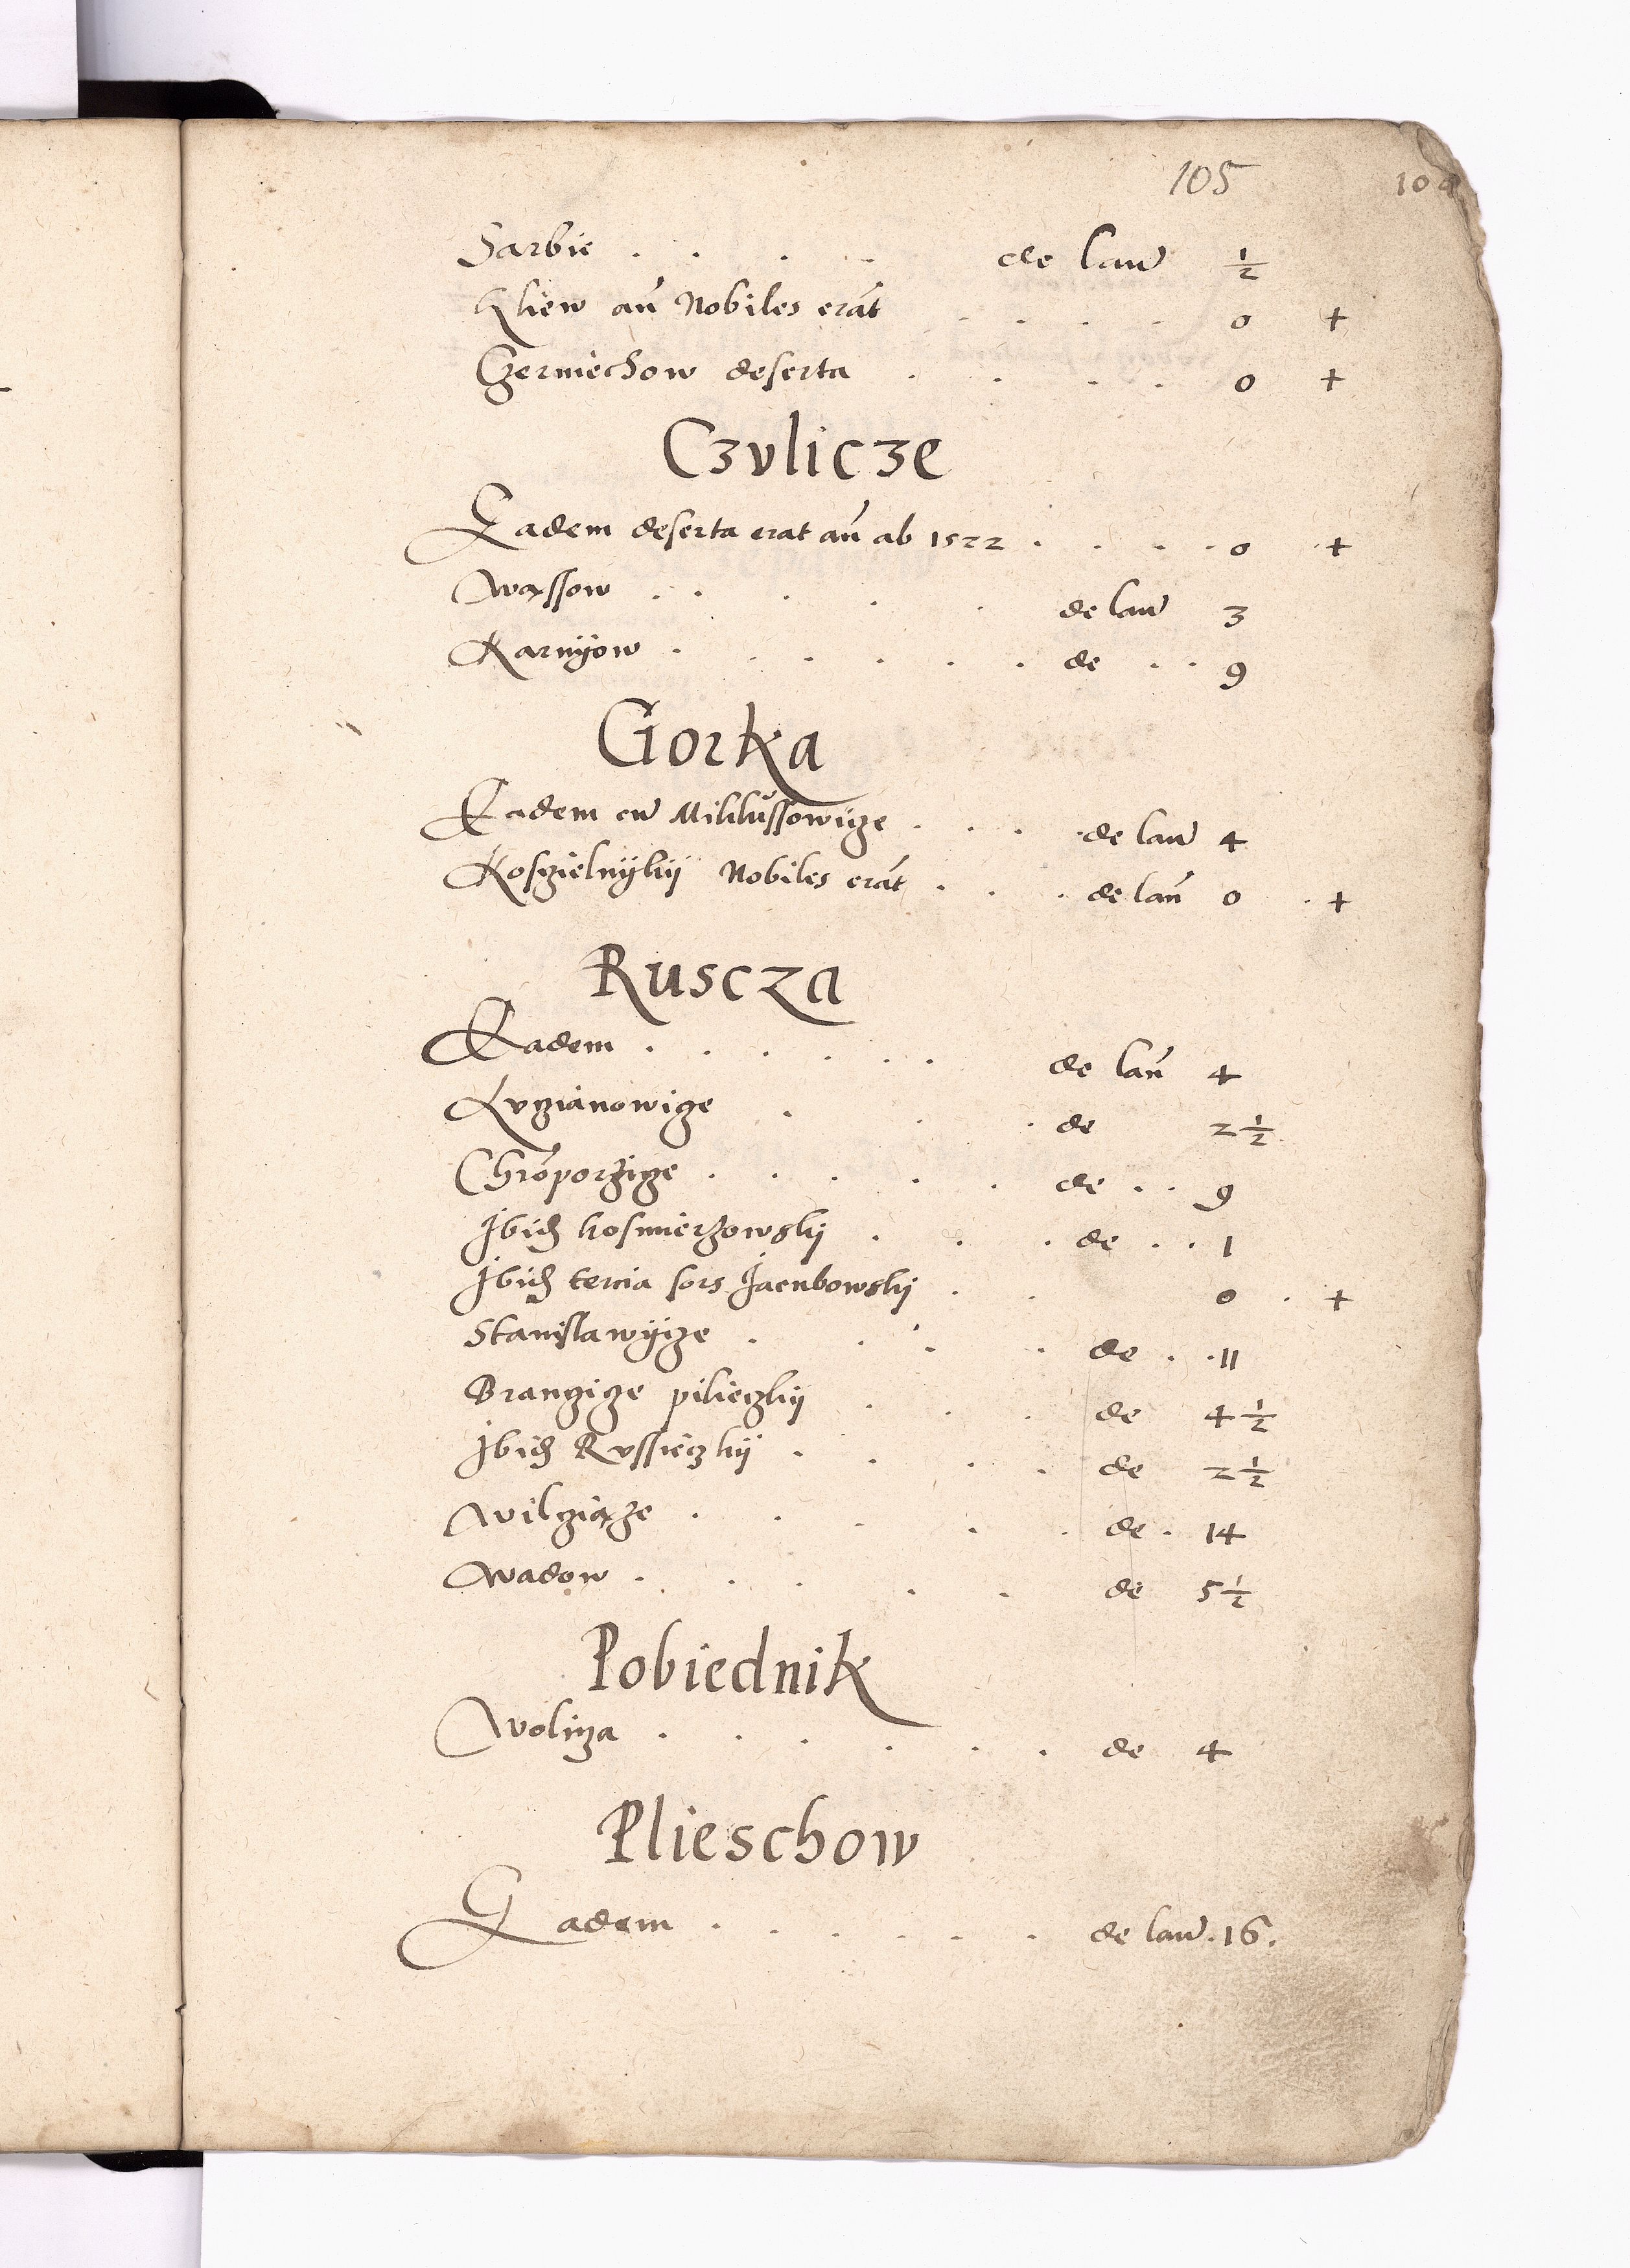 105 104
Sarbie . . . . de lan̄ ½
Khiew an̄ Nobiles erāt . . . . 0 +
Czerniechow deserta . . . . 0 +
Czvlicze
Eadem deserta erat an̄ ab 1522 . . . . 0 +
Wąssow . . . . . de lan̄ 3
Karnijow . . . . . . de . . 9
Gorka
Eadem cū Mikłussowicze . . . de lan̄ 4
Kosczielnijkij Nobiles erāt . . . de lan̄ 0 . +
Ruscza
Eadem . . . . . . de lan̄ 4
Lvczianowicze . . . de 2½
Chrōporzicze . . . . . de . . 9
Ibid kosmierzowskij . . . de . . 1
Ibid tercia sors Jacubowskij . . 0 . +
Stanislawijcze . . . . de . . 11
Branczicze pilieczkij . . . de 4½
Ibid Rvssieczkij . . . . de 2½
Wilcziącze . . . . . de . 14
Wadow . . . . . de 5½
Pobiednik
Wolicza . . . . . . de 4
Plieschow
Eadem . . . . . de lan̄ . 16 .